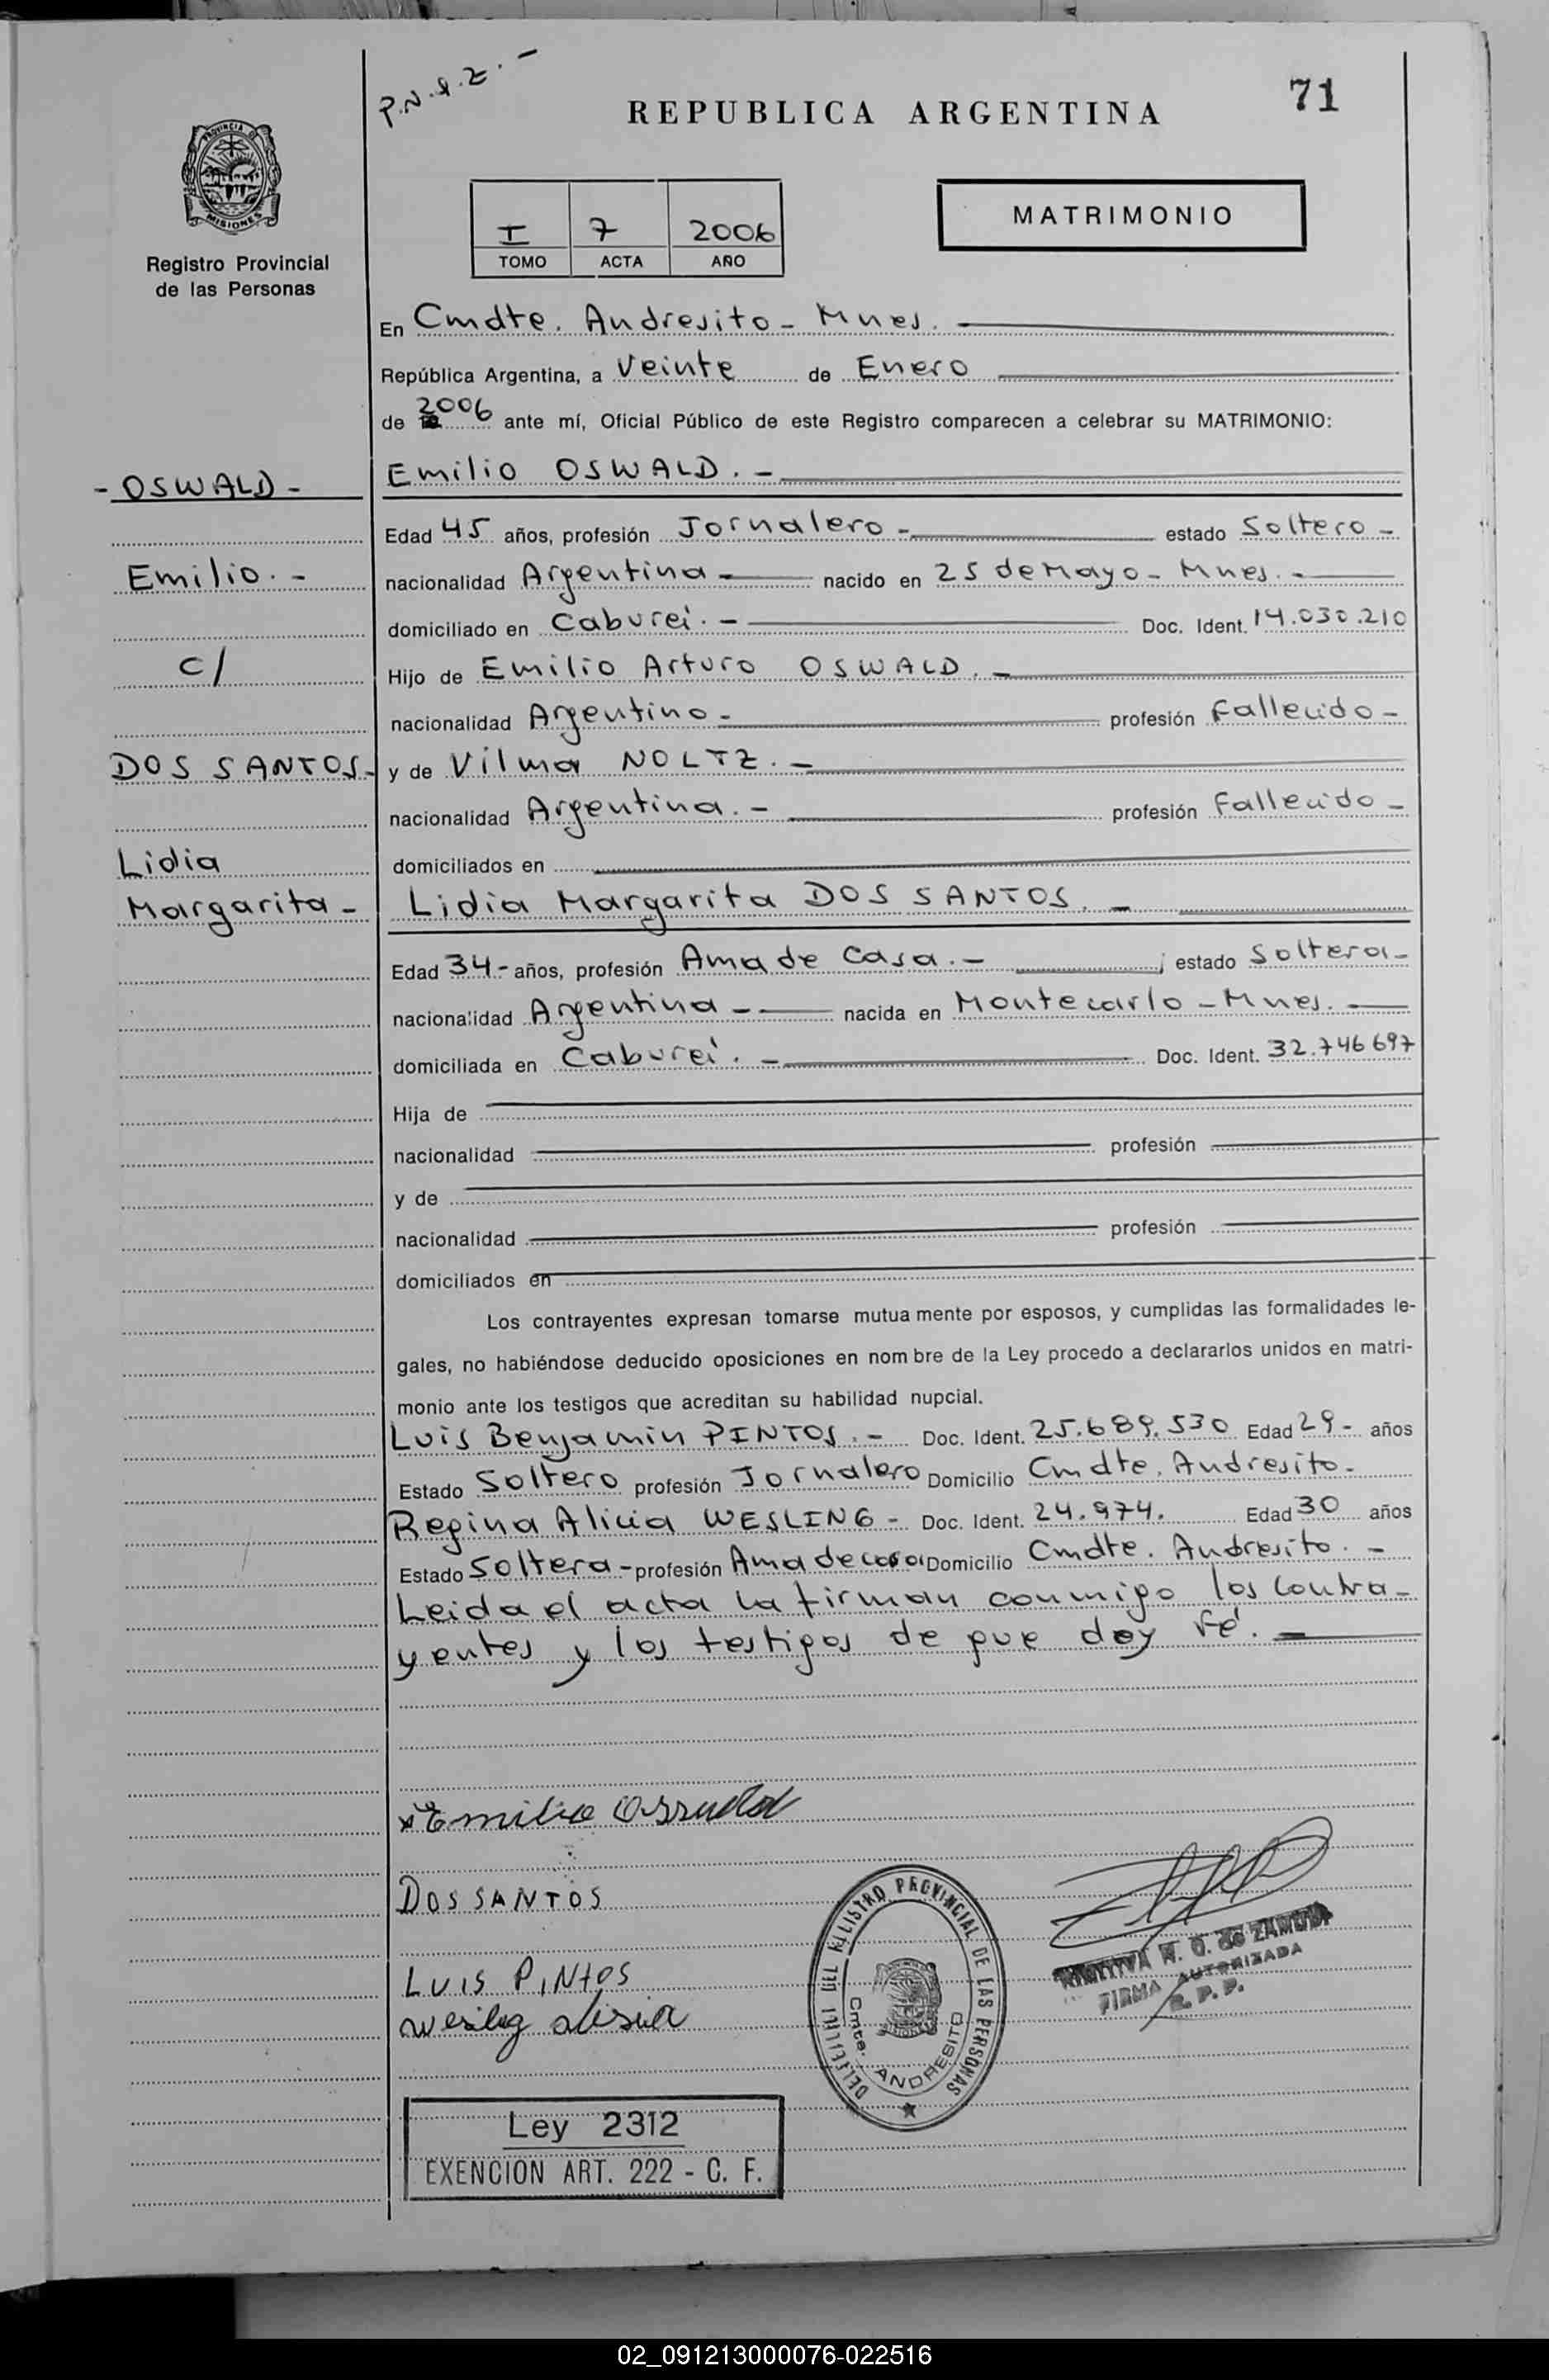 P.N.Q.Z.-
REPUBLICA ARGENTINA
71
PROVINCIA DE
MISIONES
Registro Provincial
de las Personas
I 7 2006
TOMO ACTA AÑO
MATRIMONIO
En Cmdte. Andresito - Mnes.
República Argentina, a Veinte de Enero
de 2006 ante mí, Oficial Público de este Registro comparecen a celebrar su MATRIMONIO:
- OSWALD -
Emilio OSWALD. -
Edad 45 años, profesión Jornalero - estado Soltero -
Emilio. -
nacionalidad Argentina - nacido en 25 de Mayo - Mnes. -
domiciliado en Cabureí. - Doc. Ident. 14.030.210
c/
Hijo de Emilio Arturo OSWALD. -
nacionalidad Argentino - profesión Fallecido -
DOS SANTOS -
y de Vilma NOLTZ. -
nacionalidad Argentina. - profesión Fallecido -
Lidia
domiciliados en
Margarita -
Lidia Margarita DOS SANTOS. -
Edad 34 - años, profesión Ama de Casa. - estado Soltera -
nacionalidad Argentina - nacida en Montecarlo - Mnes. -
domiciliada en Cabureí. - Doc. Ident. 32.746697
Hija de
nacionalidad profesión
y de
nacionalidad profesión
domiciliados en
Los contrayentes expresan tomarse mutua mente por esposos, y cumplidas las formalidades le-
gales, no habiéndose deducido oposiciones en nom bre de la Ley procedo a declararlos unidos en matri-
monio ante los testigos que acreditan su habilidad nupcial.
Luis Benjamin PINTOS. - Doc. Ident. 25.689.530 Edad 29 - años
Estado Soltero profesión Jornalero Domicilio Cmdte. Andresito -
Regina Alicia WESLING - Doc. Ident. 24.974. Edad 30 años
Estado Soltera - profesión Ama de casa Domicilio Cmdte. Andresito. -
Leida el acta la firman conmigo los contra-
yentes y los testigos de que doy fé. -
x Emilio Osswald
DOS SANTOS
LUIS PINTOS
weslig alisia
REGISTRO PROVINCIAL DE LAS PERSONAS
Cmte. ANDRESITO
N. O. de ZAMUDI
FIRMA AUTORIZADA
R. P. P.
Ley 2312
EXENCION ART. 222 - C. F.
02_091213000076-022516